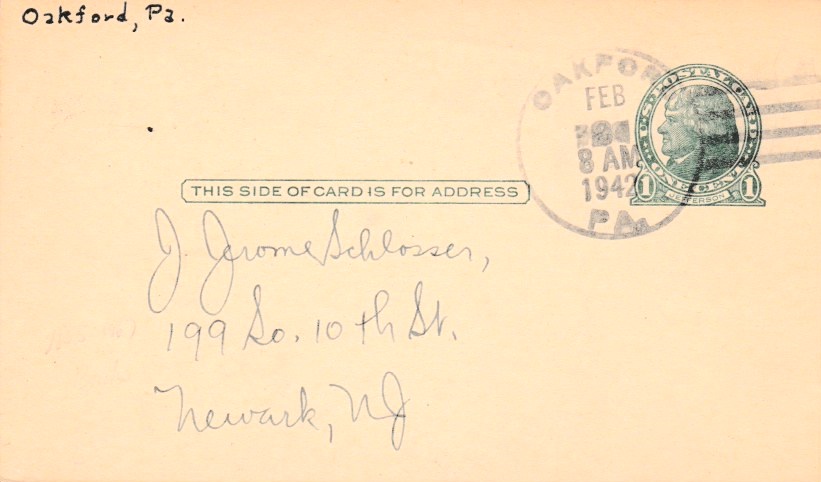 Oakford, Pa.
OAKFOR
FEB
8 AM
1942
PA.
U.S. POSTAL CARD
ONE CENT
1 JEFFERSON 1
THIS SIDE OF CARD IS FOR ADDRESS
J Jerome Schlosser,
199 So. 10th St.
Newark, NJ